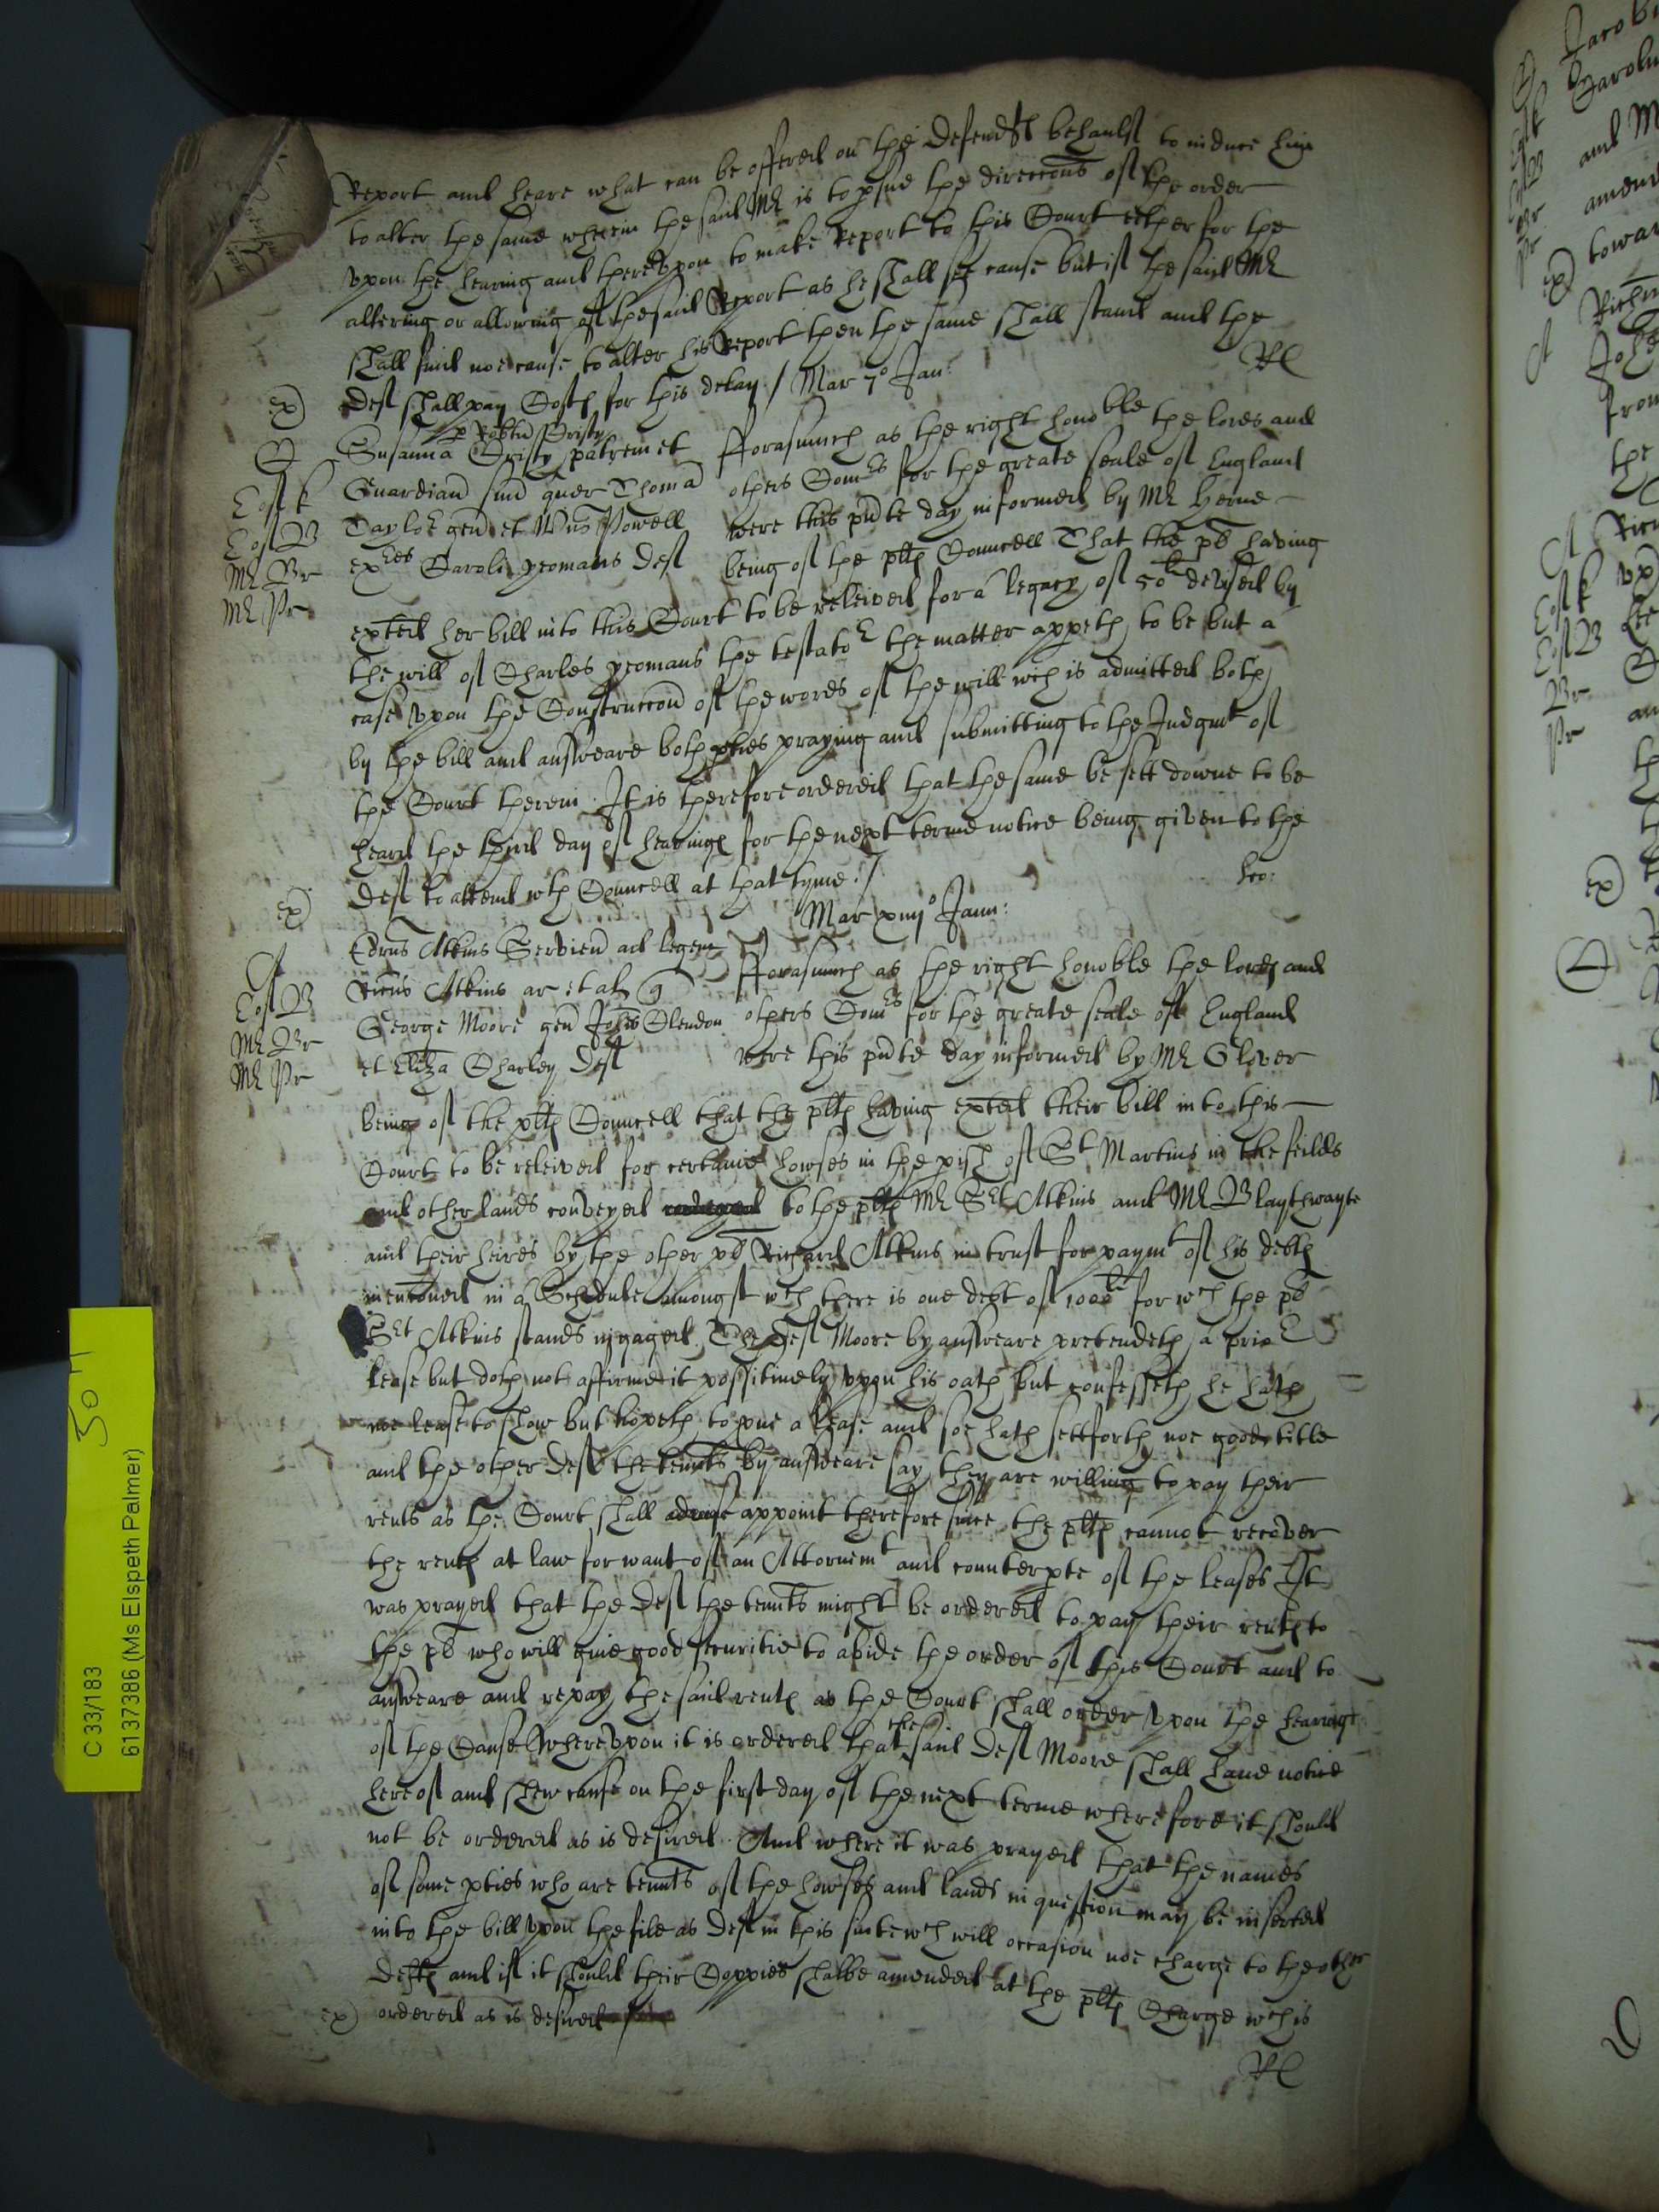 Report and heare what can be offered on the Defendts behaulf to induce him
to alter the same wherein the said Mr is to psue the direccons of the order
vpon the hearing and therevpon to make Report to this Court either for the
altering or allowing of the said Report as he shall see cause but if the said Mr
shall find noe cause to alter his Report then the same shall stand and the
Deft shall pay Costs for this delay / Mar 7o Jan:
Rl
ex)
p Robtu Cristy
Susanna Cristy patrem et
Guardian suu quer Thoma
Taylor gen et Willus Powell
exres Caroli yeomans Deft
E of k
E of B
Mr Br
Mr Pr
fforasmuch as the right honoble the lords and
others Comrs for the greate seale of England
were this pnte day informed by Mr Herne
being of the plts Councell That the pl having
exted her bill into this Court to be releived for a legacy of 50l devised by
the will of Charles yeomans the testator the matter appeth to be but a
case vpon the Construccon of the words of the will wch is admitted both
by the bill and answeare both pties praying and submitting to the Judgmt of
the Court therein. It is therefore ordered that the same be sett downe to be
heard the third day of hearings for the next terme notice being given to the
Deft to attend wth Councell at that tyme. /
ex)
Mar xiiijo Janu:
Edrus Atkins Servien ad legem
Ricus Atkins ar et al q
George Moore gen Johis Clendon
et Eliza Charley Deft
A
E of B
Mr Br
Mr Pr
fforasmuch as the right honoble the lords and
others Comrs for the greate seale of England
were this pnte day informed by Mr Glover
being of the plts Councell that the plts having exted their bill into this
Court to be releived for certaine howses in the pish of St Martins in the feilds
and other lands conveyed to the plts Mr Sert Atkins and Mr Blaythwayte
and their heires by the other pl Richard Atkins in trust for paymt of his debts
mencoued in a Schedule amongst wch there is one debt of 1000l for wch the pl
Sert Atkins stands ingaged. The Deft Moore by answeare pretendeth a prior
lease but doth not affirme it possitively vpon his oath but confesseth he hath
noe lease to show but hopeth to pue a lease and soe hath settforth noe good title
and the other Deft the tennts by answeare say they are willing to pay their
rents as the Court shall appoint therefore since the plts cannot recover
the rents at law for want of an Attornemt and counterpte of the leases It
was prayed that the Deft the tennts might be ordered to pay their rents to
the pl who will give good securitie to abide the order of this Court and to
answeare and repay the said rents as the Court shall order vpon the hearinge
of the Cause Wherevpon it is ordered that the said Deft Moore shall have notice
hereof and shew cause on the first day of the next terme wherefore it should
not be ordered as is desired. And where it was prayed that the names
of some pties who are tennts of the howses and lands in question may be inserted
into the bill vpon the file as Deft in this suite wch will occasion noe charge to the other
Defts and if it should their Coppies shalbe amended at the plts Charge wch is
ex) ordered as is desired
Rl
304
C 33/183
61373​86 (Ms Elspeth Palmer)